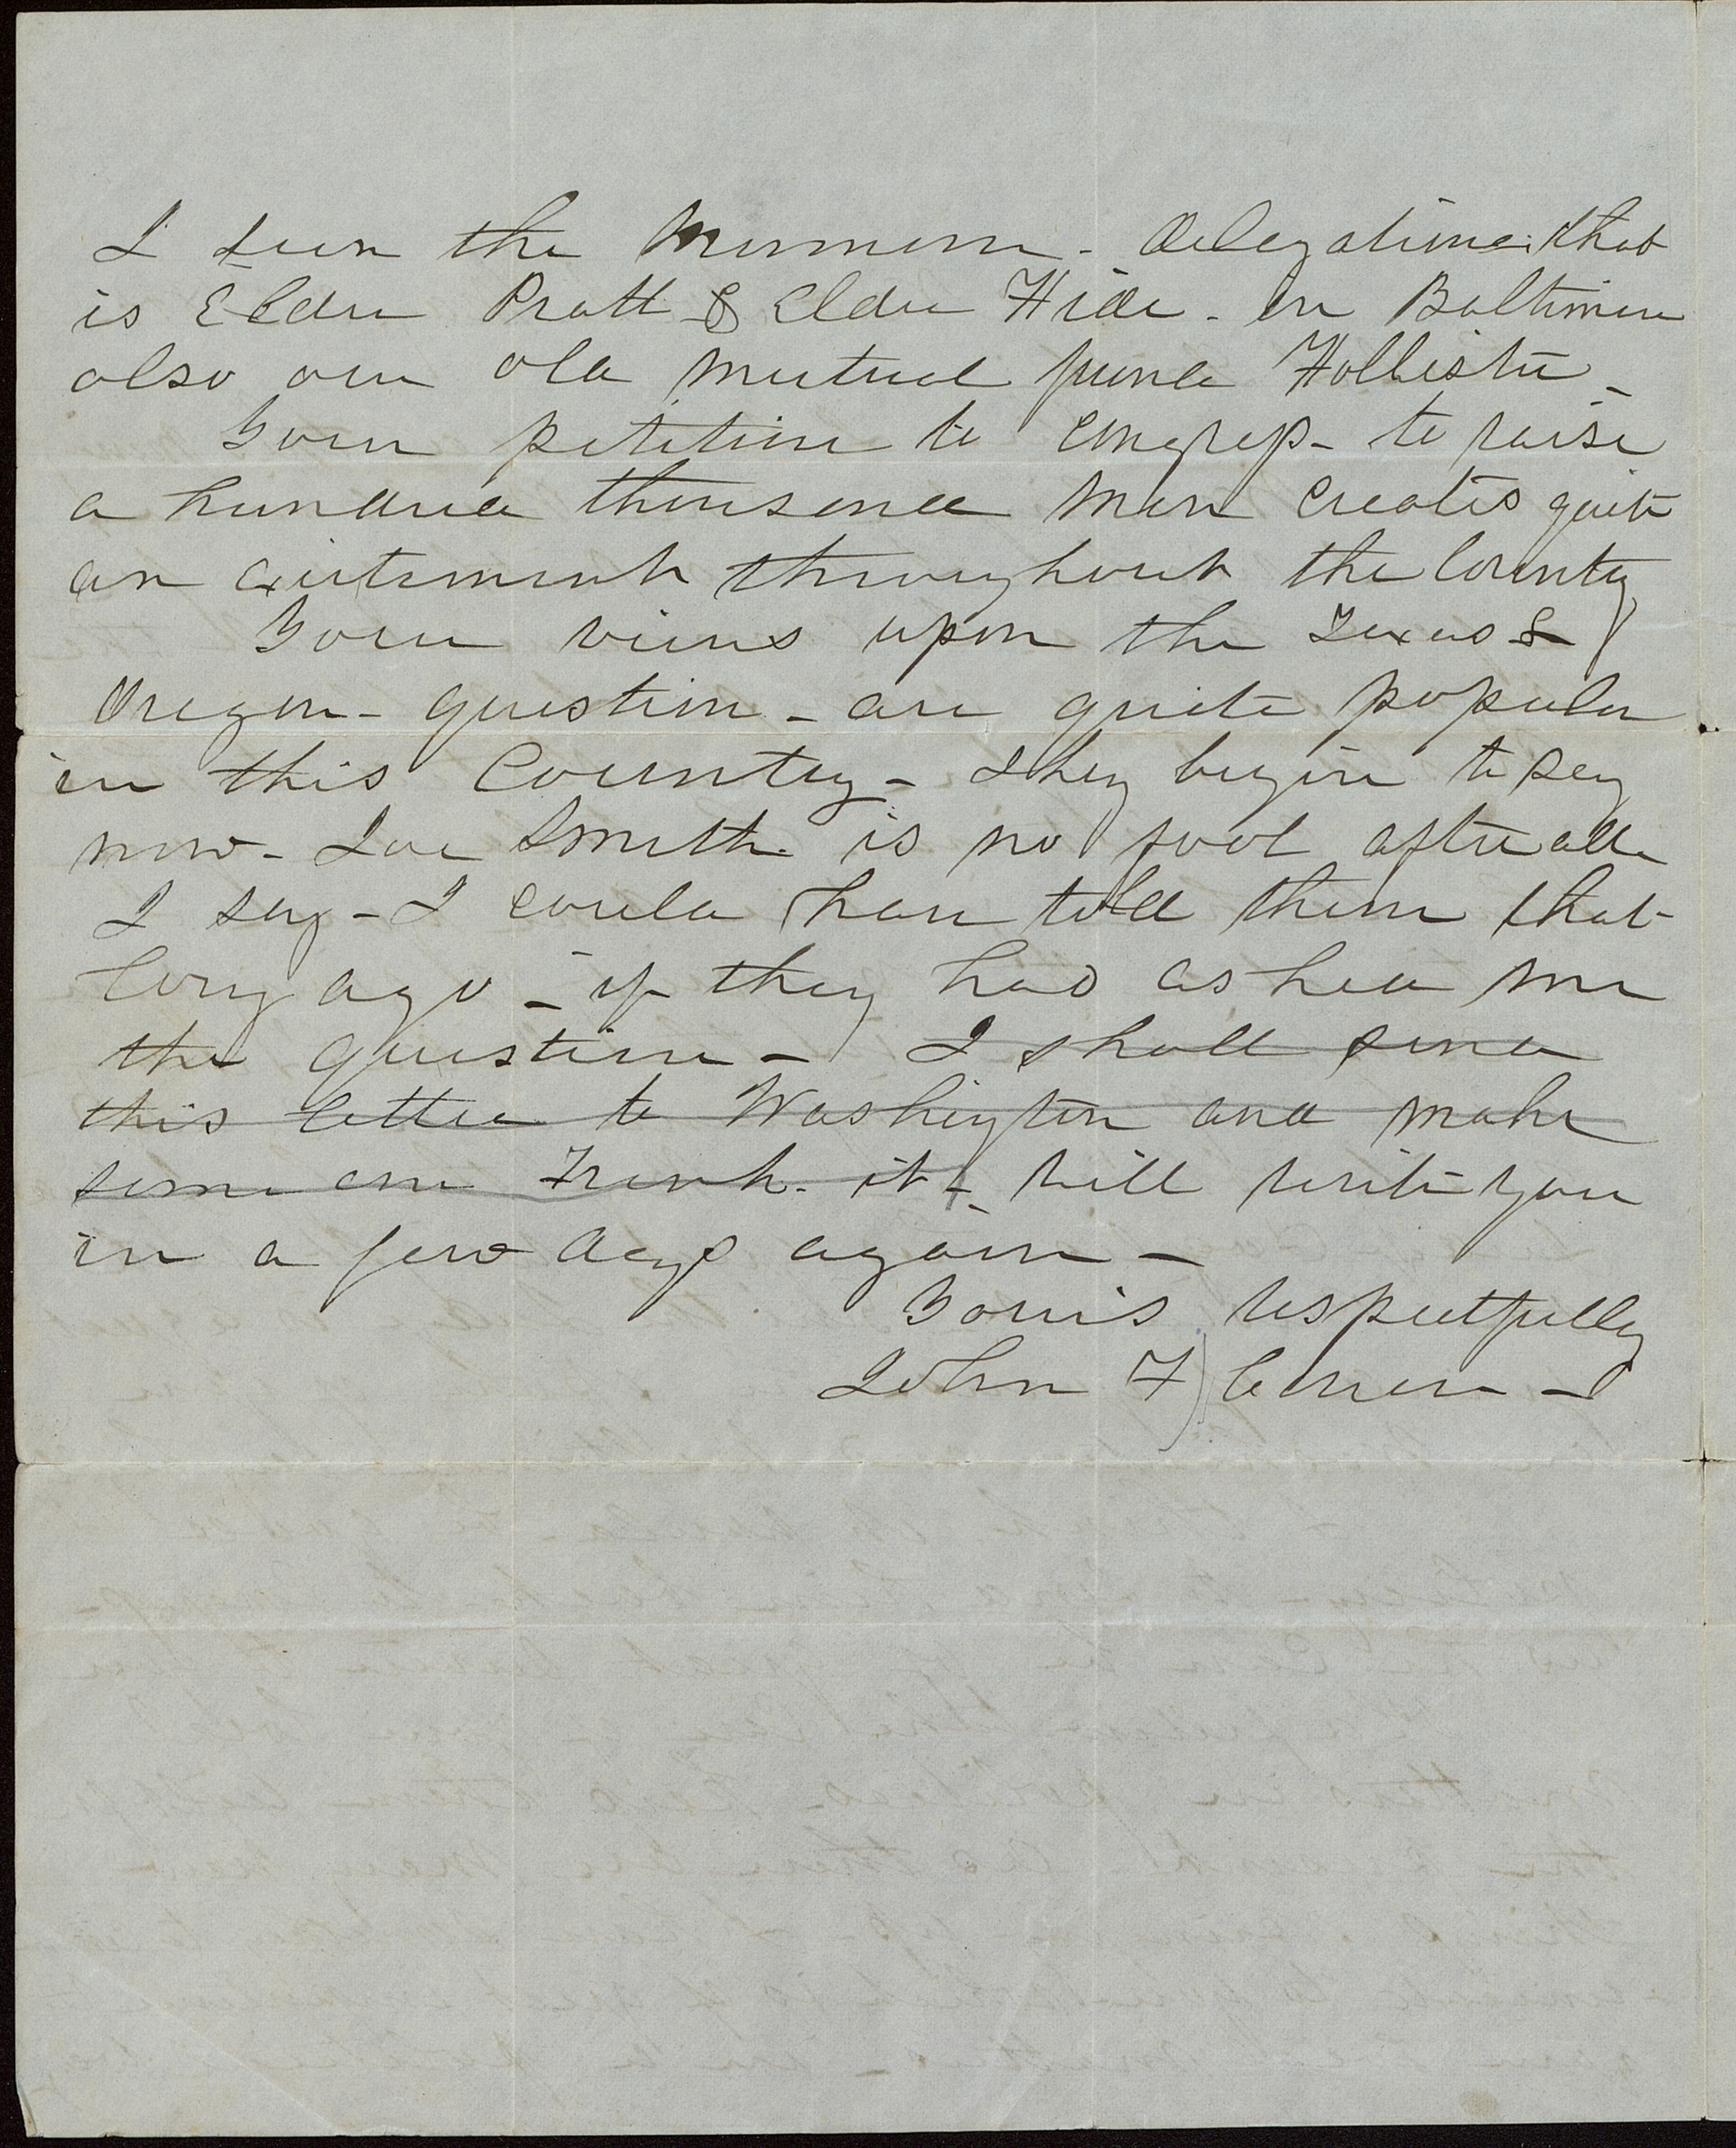 I seen the Mormon - delegation: that
is Elder Pratt & Elder Hide - in Baltimore
also our old mutual friend Hollister -
Your petition to Congress - to raise
a hundred thousand men creates quite
an excitement throughout the County
Your views upon the Texas &
Oregon - question - are quite popular
in this Country - They begin to say
now - Joe Smith is no fool after all
I say - I could have told them that
long ago - if they had asked me
the question - I shall send
this letter to Washington and make
some one Frank it - will write you
in a few days again -
Yours respectfully
John F Cowan